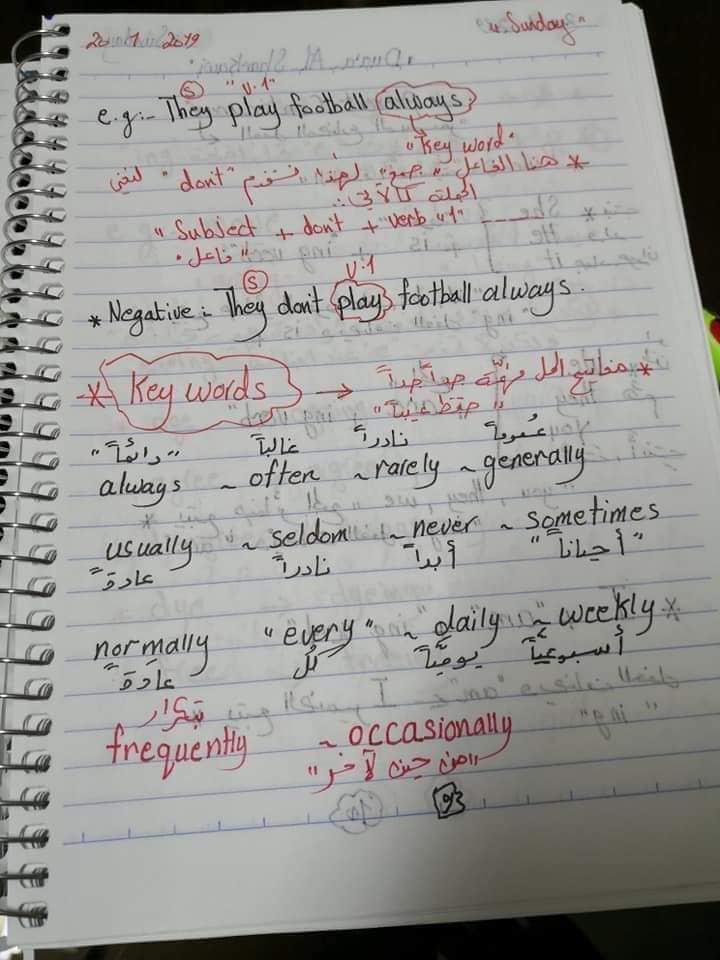 20 1 2019 "Sunday"
(S) "V.1"
e.g:- They play football always.
"Key word"
* هنا الفاعل "جمع" لهذا نستخدم "don't" لنفي
الجملة كالآتي:
"Subject + don't + verb "1"
"فاعل"
(S) V.1
* Negative: They don't play football always.
* Key words → * مفاتيح الحل مهمّة جداً جداً
"حفظ غيباً"
"دائماً" غالباً نادراً عُموماً
always ~ often ~ rarely ~ generally
usually ~ seldom ~ never ~ sometimes
عادةً نادراً أبداً "أحياناً"
normally "every" ~ daily ~ weekly
عادَةً كُل يوميّاً أسبوعيّاً
تكرار
frequently ~ occasionally
"من حين لآخر"